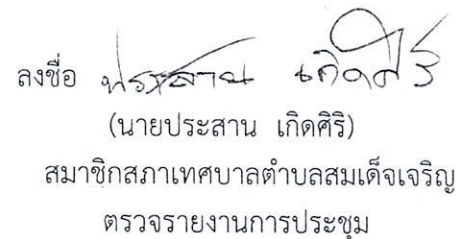 ลงชื่อ ประสาน เกิดศิริ
(นายประสาน เกิดศิริ)
สมาชิกสภาเทศบาลตำบลสมเด็จเจริญ
ตรวจรายงานการประชุม